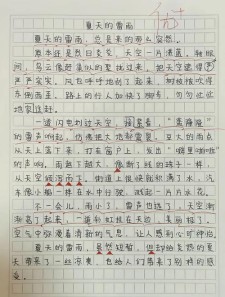 夏天的雷雨
夏天的雷雨，总是来的那么突然。
原本还是烈日炎炎，天空一片清蓝，转眼间，
乌云像赶集似的聚拢过来，把天空遮得
严严实实，风也呼呼地刮了起来，树枝被吹得
东倒西歪，路上的行人加快了脚步，匆匆忙忙
地家赶。
一道闪电划过天空，接着，“轰隆隆”
的雷声响起，仿佛把大地都震裂。豆大的雨点
从天上落下来，打在窗户上，发出“噼里啪啦”
的声响。雨越下越大，像断了线的珠子一样，
从天空倾泻而下。街道上很快就积满了水，汽
车像小船一样在水中行驶，溅起一片片水花。
不一会儿，雨小了，雷声也停了，天空渐
渐亮了起来，一道彩虹挂在天边，美丽极了。
空气中弥漫着清新的气息，让人感到心旷神怡。
夏天的雷雨，虽然短暂，但却给炎热的夏
天带来了一丝凉爽，也给人们带来了别样的感
受。